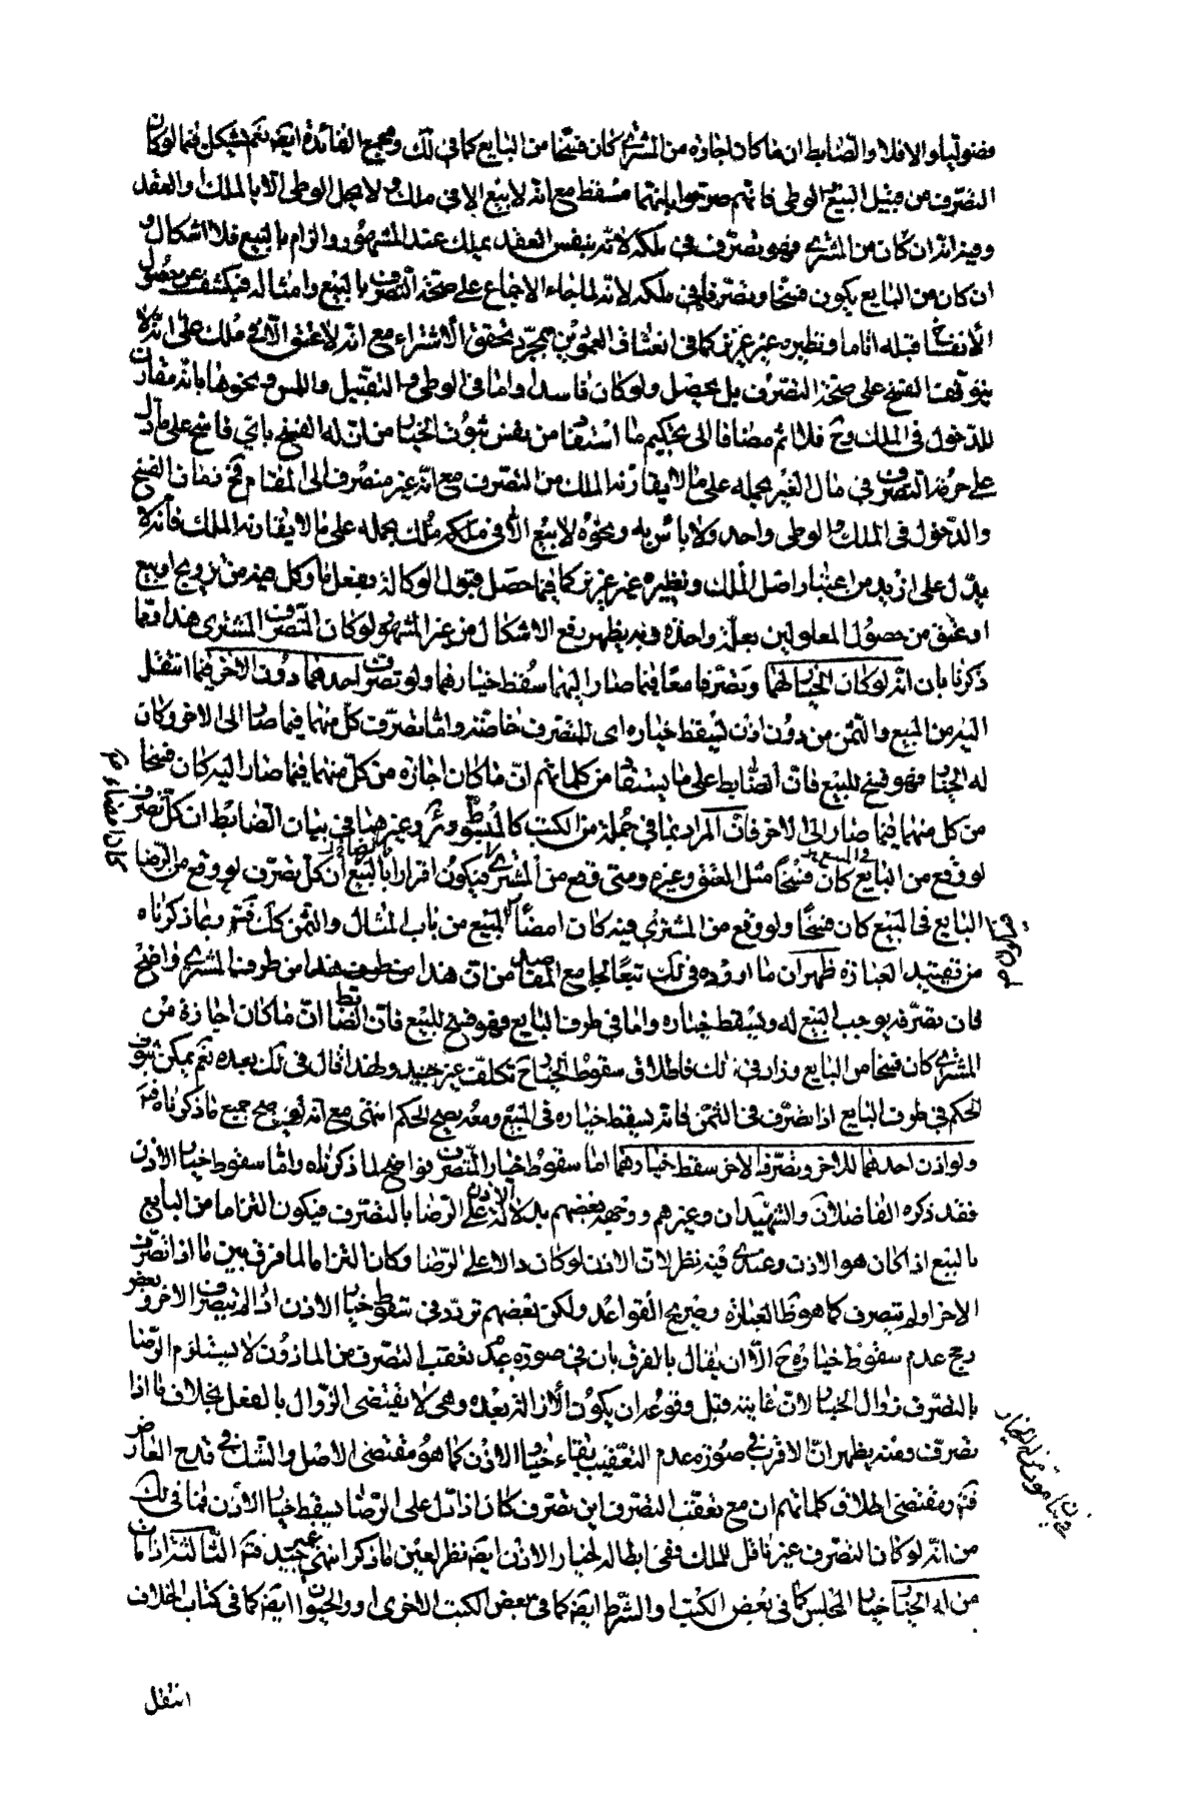 فضوليا والا فلا والضابط ان ما كان اجازة من المشترى كان فسخا من البايع كما فى لك ومجمع الفائدة ايضا نعم يشكل فيما لو كان
التصرف من قبيل البيع الوطى فانهم صرحوا بانهما مسقط مع انه لا بيع الا فى ملك ولا يحل الوطى الا بالملك او العقد
وفيه انه ان كان من المشترى فهو تصرف فى ملكه لانه بنفس العقد يملك عند المشهور والزام بالبيع فلا اشكال و
ان كان من البايع يكون فسخا وتصرفا فى ملكه لانه لما جاء الاجماع على صحة التصرف بالبيع وامثاله فيكشف عن حصول
الانفساخ قبله انا ما ونظيره غير عزيز كما فى انعتاق العمودين بمجرد تحقق الاشتراء مع انه لا عتق الا فى ملك على انه لا
يتوقف الفسخ على صحة التصرف بل يحصل ولو كان فاسدا واما فى الوطى والتقبيل واللمس ونحوها بانه مقارن
للدخول فى الملك وح فلا اثم مضافا الى تحكيم ما استفدنا من نفس ثبوت الخيار من ان له الفسخ باى فاسخ على ما دل
على حرمة التصرف فى مال الغير بحمله على ما لا يقارنه الملك من التصرف مع انه غير منصرف الى المقام فح زمان الفسخ
والدخول فى الملك والوطى واحد ولا باس به ونحوه لا بيع الا فى ملك بحمله على ما لا يقارنه الملك فانه لا
يدل على ازيد من اعتبار اصل الملك ونظيره غير عزيز كما فيما حصل قبول الوكالة بفعل ما وكل فيه من تزويج او بيع
او عتق من حصول المعلولين بعلة واحدة وبه يظهر رفع الاشكال من غير المشهور لو كان التصرف المشترى هذا ومما
ذكرنا بان انه لو كان الخيار لهما وتصرفا معا فيما صار اليهما سقط خيارهما ولو تصرف احدهما دون الاخر فيما انتقل
اليه من المبيع والثمن من دون اذن ليسقط خياره اى المتصرف خاصة واما تصرف كل منهما فيما صار الى الاخر وكان
له الخيار فهو فسخ للبيع فان الضابط على ما يستفاد من كلماتهم ان ما كان اجازة من كل منهما فيما صار اليه كان فسخا
من كل منهما فيما صار الى الاخر فان المراد بما فى جملة من الكتب كالمبسوط وغيرها فى بيان الضابط ان كل تصرف
لو وقع من البايع فى المبيع كان فسخا مثل العتق وغيره ومتى وقع من المشترى فيكون اقرارا بالبيع ان كل تصرف لو وقع من الرضا
البايع فى المبيع كان فسخا ولو وقع من المشترى فيه كان امضاء المبيع من باب المثال والثمن كك فتم وبما ذكرناه
من تقييد العبارة ظهر ان ما اورده فى لك تبعا لجامع المقاصد من ان هذا من طرف هذا من طرف المشترى واضح
فان تصرفه يوجب البيع له ويسقط خياره واما فى طرف البايع فهو فسخ للبيع فان الضابط ان ما كان اجازة من
المشترى كان فسخا من البايع وزاد فى لك فاطلاق سقوط الخيار ح تكلف غير جيد ولهذا قال فى لك بعده نعم يمكن ثبوت
الحكم فى طرف البايع اذا تصرف فى الثمن فانه يسقط خياره فى المبيع ومعه يصح الحكم انتهى مع انه لم يصح جميع ما ذكرناه فتم
ولو اذن احدهما للاخر وتصرف الاخر سقط خيارهما اما سقوط خيار المتصرف فواضح لما ذكرناه واما سقوط خيار الاذن
فقد ذكره الفاضلان والشهيدان وغيرهم ووجهه بعضهم بدلالة الاذن على الرضا بالتصرف فيكون التزاما من البايع
بالبيع اذا كان هو الاذن وعندى فيه نظر لان الاذن لو كان دالا على الرضا وكان التزاما لما فرق بين ما اذا تصرف
الاخر او لم يتصرف كما هو ظ العبارة وصريح القواعد ولكن بعضهم تردد فى سقوط خيار الاذن اذا لم يتصرف الاخر وبعض
رجح عدم سقوط خياره ح الا ان يقال بالفرق بان فى صورة عدم تعقب التصرف من الماذون لا يستلزم الرضا
بالتصرف زوال الخيار لان غايته قبل وقوعه ان يكون الازالة بعيده وهى لا يقتضى الزوال بالفعل بخلاف ما اذا
تصرف ومنه يظهر ان الاقرب فى صورة عدم التعقيب بقاء خيار الاذن كما هو مقتضى الاصل والشك فى قدح العارض
فتم ومقتضى اطلاق كلماتهم ان مع تعقب التصرف اين تصرف كان اذا دل على الرضا يسقط خيار الاذن فما فى لك
من انه لو كان التصرف غير ناقل للملك ففى ابطاله لخيار الاذن ايضا نظر لعين ما ذكر انتهى غير جيد فتم الثالثة اذا مات
من له الخيار خيار المجلس كما فى بعض الكتب او الشرط ايضا كما فى بعض الكتب الاخرى او والحيوان ايضا كما فى كتاب الخلاف
انتقل